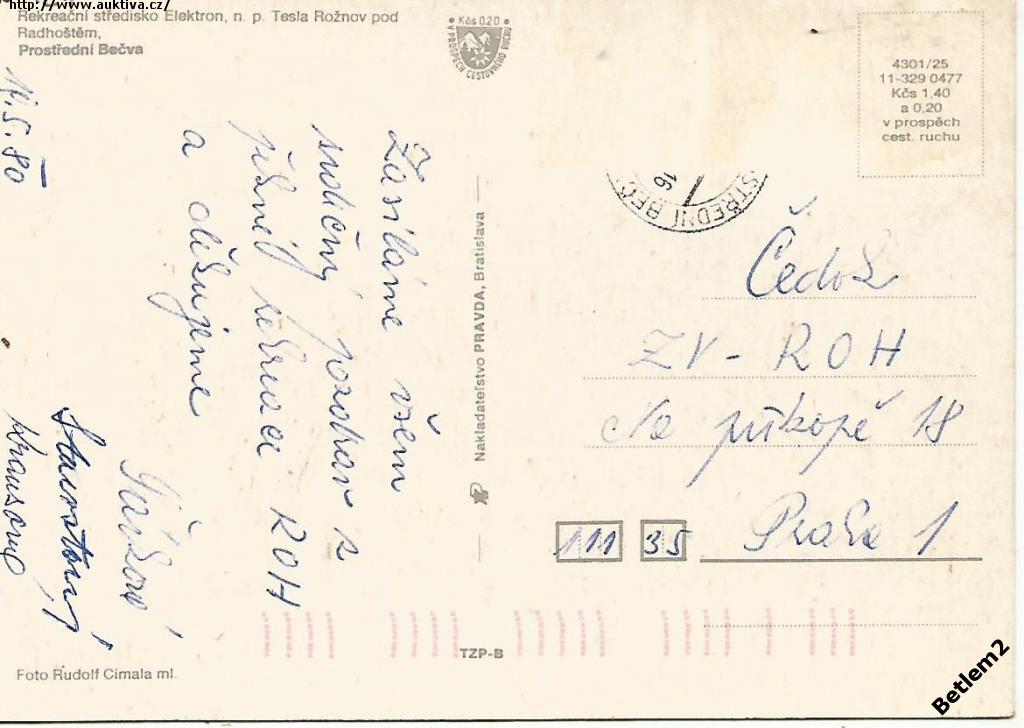 http://www.auktiva.cz/
Rekreační středisko Elektron, n. p. Tesla Rožnov pod
Radhoštěm,
Prostřední Bečva
• Kčs 0.20 •
V PROSPECH CESTOVNÉHO RUCHU
4301/25
11-329 0477
Kčs 1,40
a 0,20
v prospěch
cest. ruchu
14.5.80
Zasíláme všem
srdečný pozdrav z
ROH
a
STŘEDNÍ BEČ
16
Čedok
ZV-ROH
Na příkopě 18
Praha 1
111 35
Nakladateľstvo PRAVDA, Bratislava
TZP-B
Foto Rudolf Cimala ml.
Betlem2